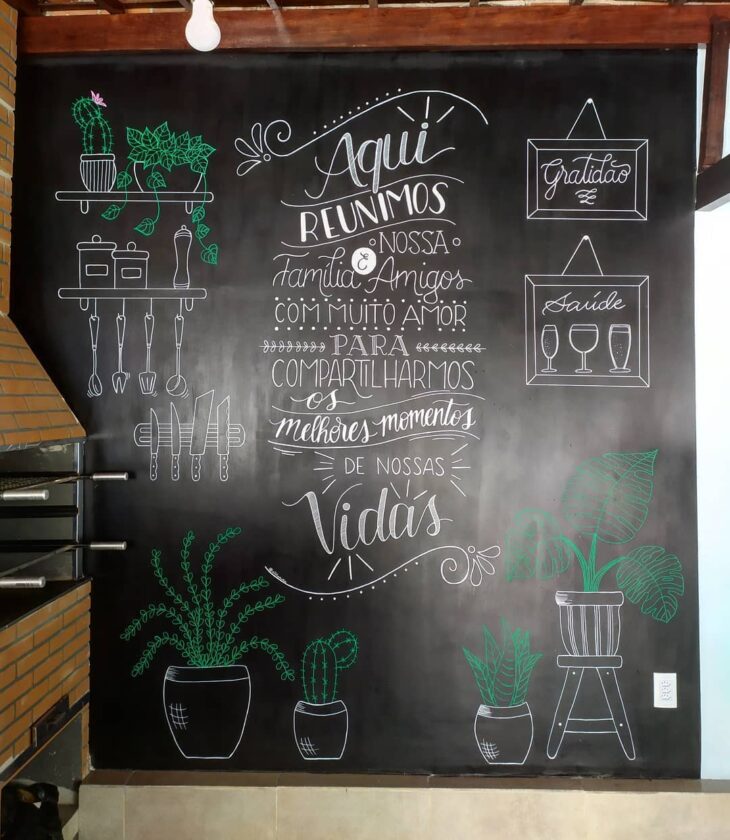 Aqui
REUNIMOS
NOSSA
Família E Amigos
COM MUITO AMOR
PARA
COMPARTILHARMOS
os
melhores momentos
DE NOSSAS
Vidas
Gratidão
Saúde